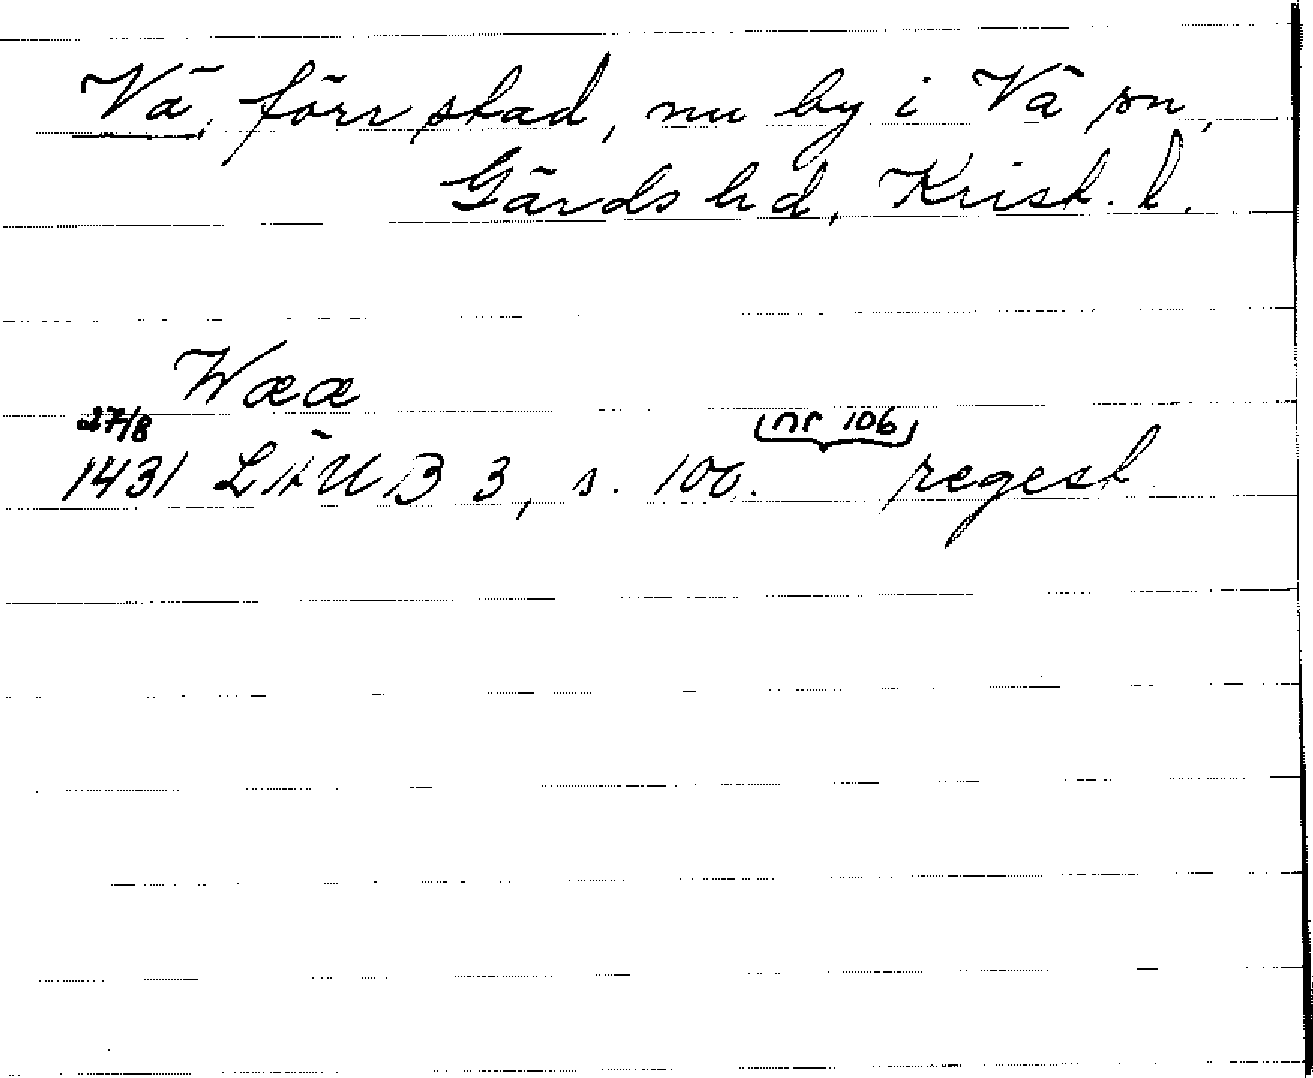 Vä, förr stad, nu by i Vä sn,
Gärds hd, Krist. l.
Wææ
27/8
nr 106
1431 LÄUB 3, s. 100. regest